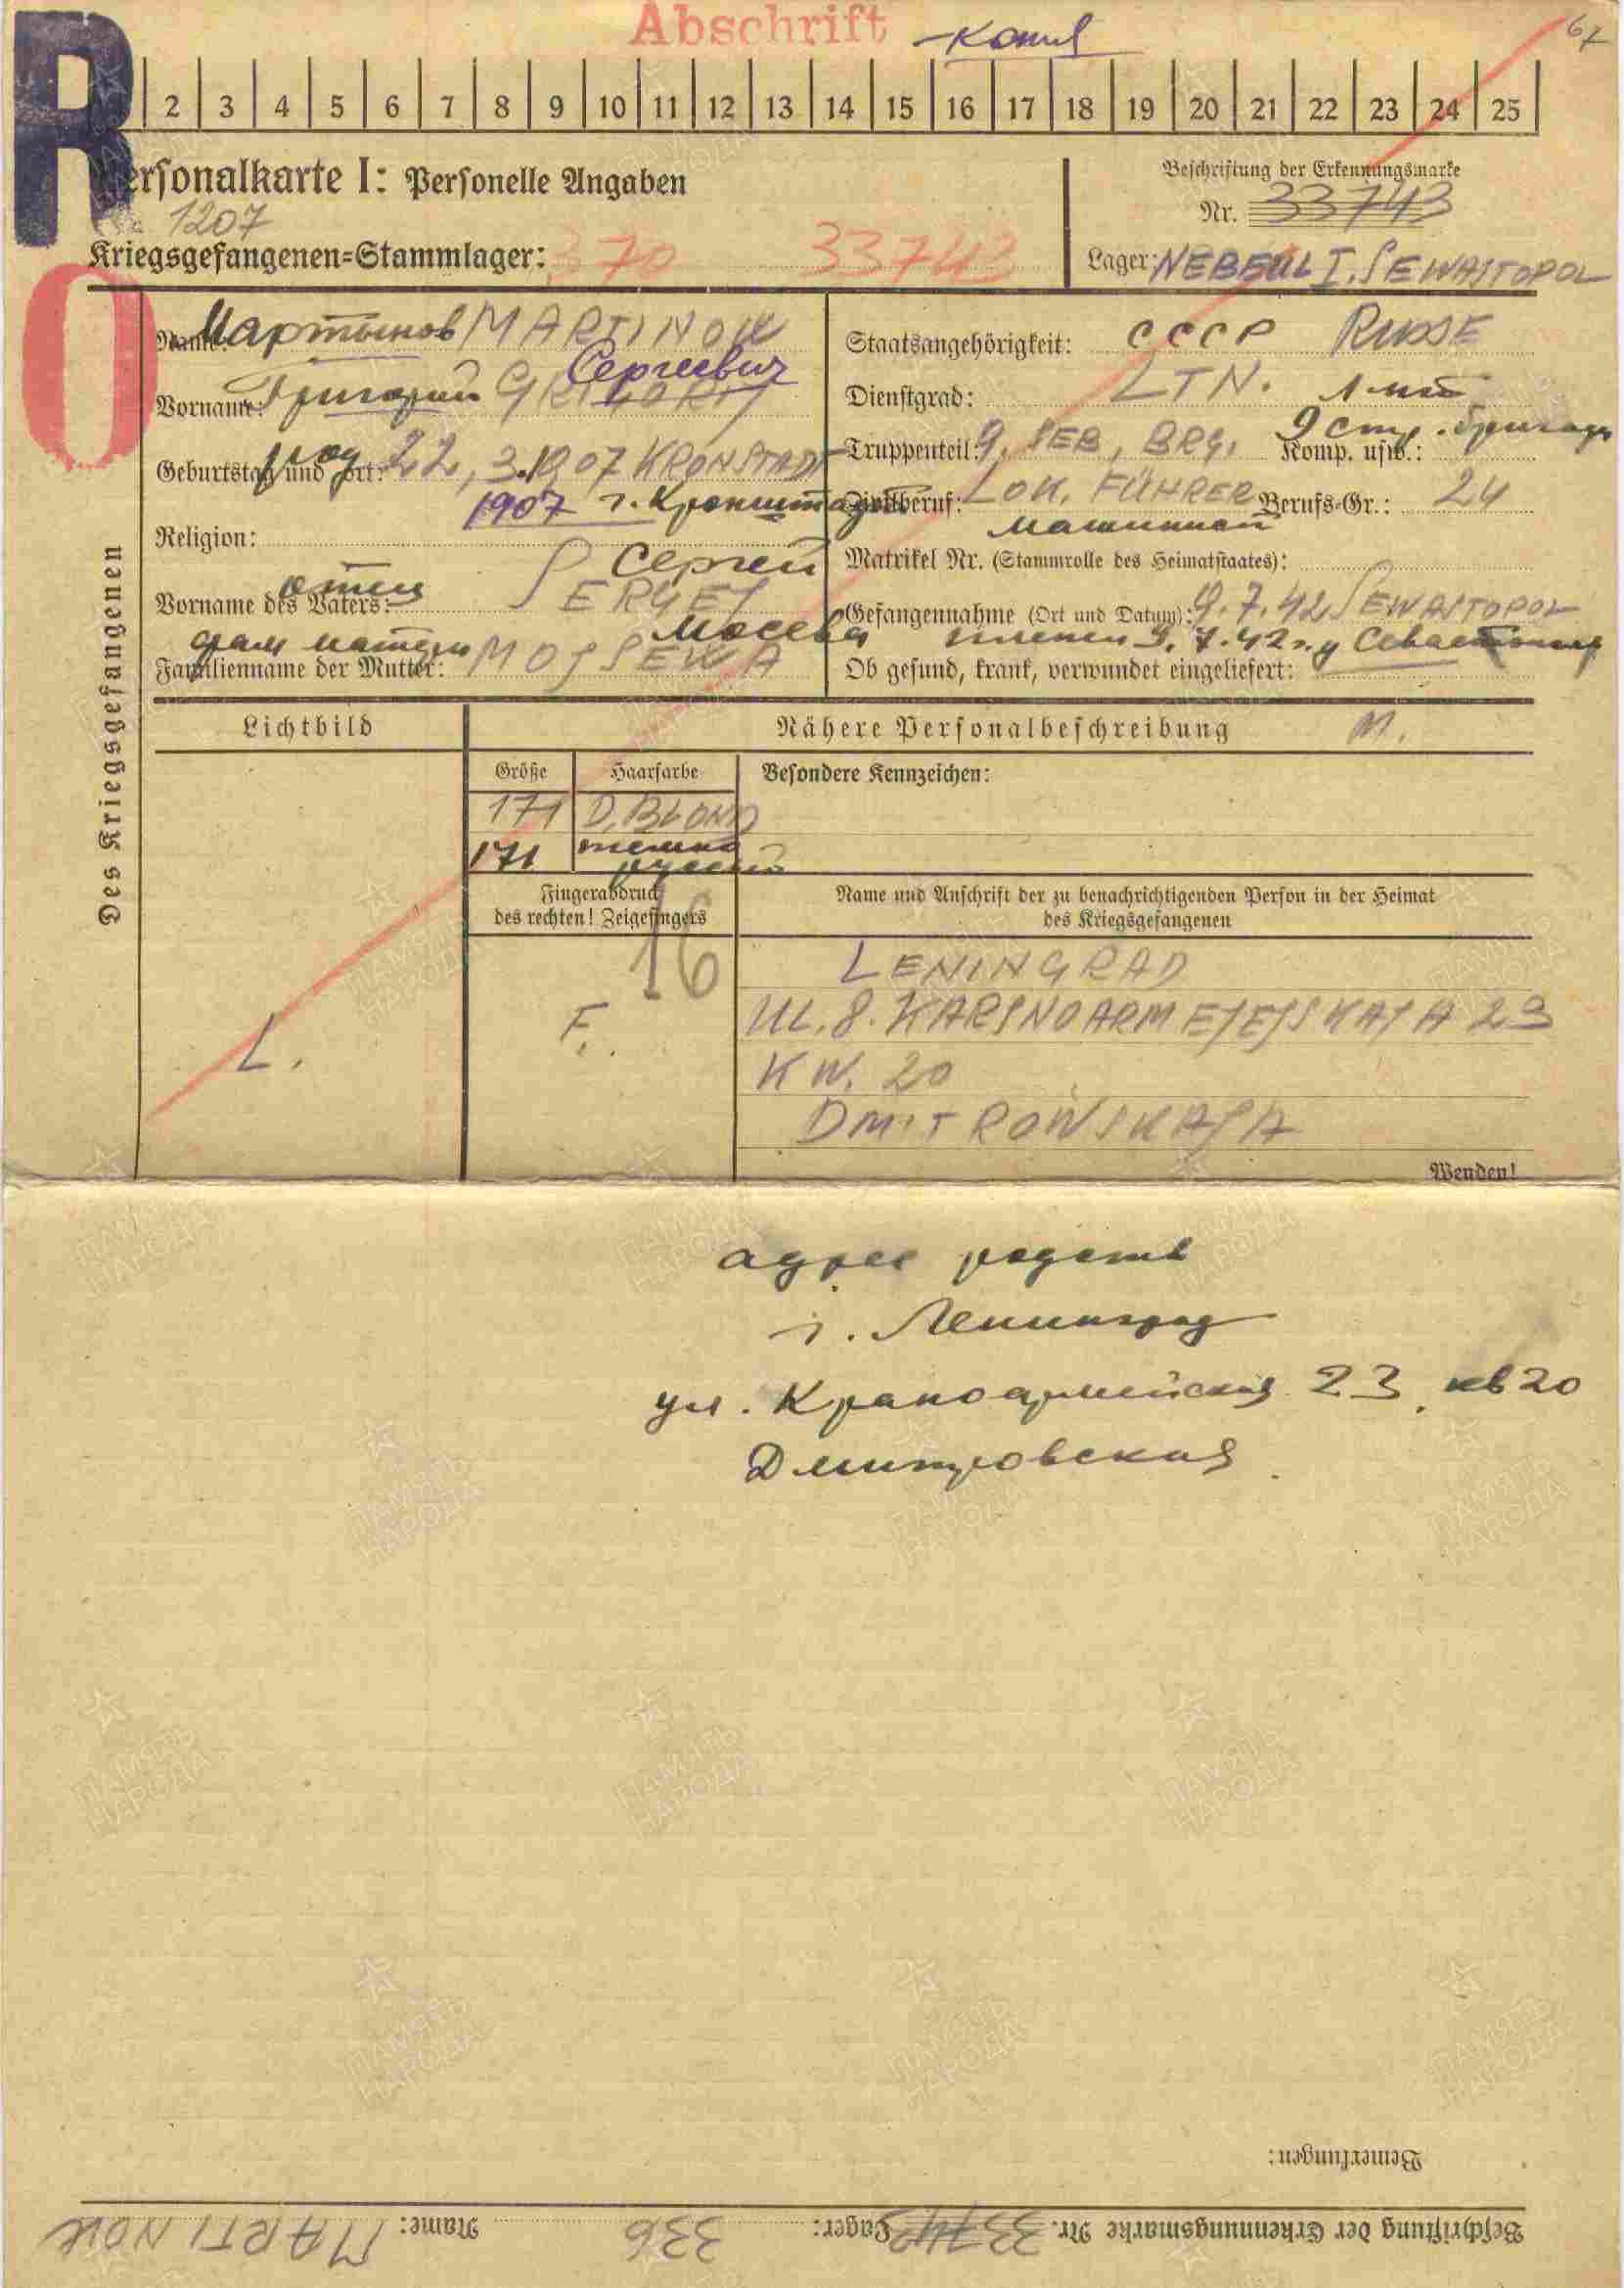 Abschrift - Копия
67
R
2 3 4 5 6 7 8 9 10 11 12 13 14 15 16 17 18 19 20 21 22 23 24 25
Personalkarte I: Personelle Angaben
1207
Kriegsgefangenen=Stammlager: 370 33743
Beschriftung der Erkennungsmarke
Nr. 33743
Lager: NEBEUL I. SEWASTOPOL
O
Des Kriegsgefangenen
Name: Мартынов MARTINOW
Сергеевич
Vorname: Григорий GRIGORIJ
Geburtstag und Ort: род 22, 3.10.07 KRONSTADT
1907 г. Кронштадт
Religion:
Сергей
Vorname des Vaters: отец SERGEJ
фам матери Мосева
Familienname der Mutter: MOJSEWA
Staatsangehörigkeit: СССР RUSSE
Dienstgrad: LTN. л-нт
Truppenteil: 9. SEB, BRG. Komp. usw.: 9 стр. бригада
Zivilberuf: LOK. FÜHRER Berufs-Gr.: 24
машинист
Matrikel Nr. (Stammrolle des Heimatstaates):
Gefangennahme (Ort und Datum): 9.7.42 SEWASTOPOL
пленен 9.7.42 г. у Севастополь
Ob gesund, krank, verwundet eingeliefert:
Lichtbild
Nähere Personalbeschreibung M.
Größe Haarfarbe Besondere Kennzeichen:
171 D. BLOND
171 темно
русый
Fingerabdruck
des rechten! Zeigefingers
16
F.
L.
Name und Anschrift der zu benachrichtigenden Person in der Heimat
des Kriegsgefangenen
LENINGRAD
UL. 8. KARSNOARMEJEJSKAJA 23
KW. 20
DMITROWSKAJA
Wenden!
адрес родств
г. Ленинград
ул. Краноармейская 23, кв 20
Дмитровская
Bemerkungen:
Beschriftung der Erkennungsmarke Nr. 33743 Lager: 336 Name: MARTINOW
ПАМЯТЬ НАРОДА